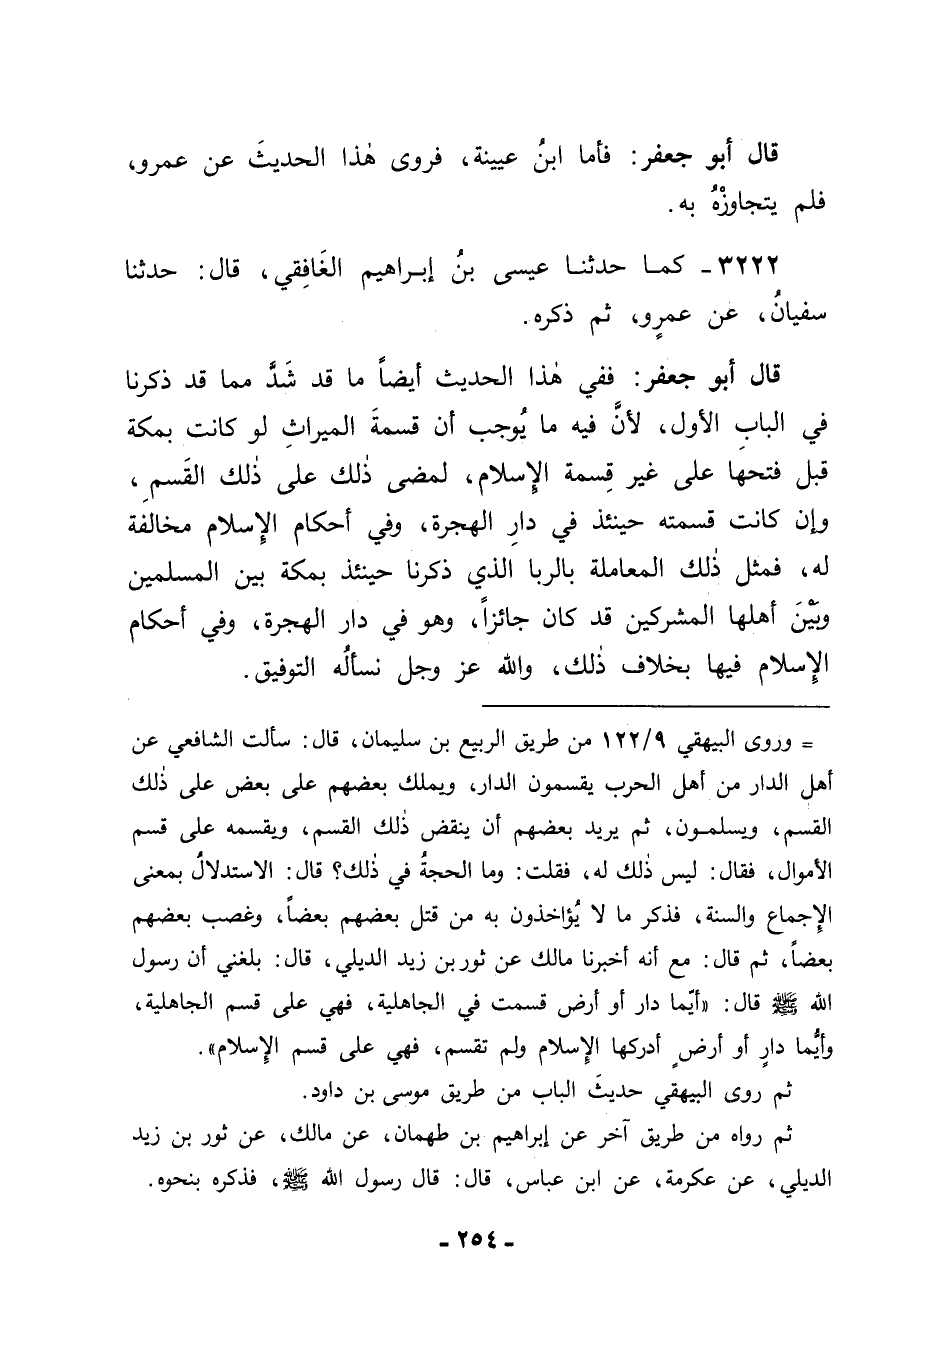 قال أبو جعفر: فأما ابنُ عيينة، فروى هٰذا الحديثَ عن عمرو،
فلم يتجاوزْهُ به.
٣٢٢٢ـ كمـا حدثنـا عيسى بنُ إبـراهيم الغَافِقي، قال: حدثنا
سفيانُ، عن عمرٍو، ثم ذكره.
قال أبو جعفر: ففي هٰذا الحديث أيضاً ما قد شَدَّ مما قد ذكرنا
في البابِ الأول، لأنَّ فيه ما يُوجب أن قسمةَ الميراثِ لو كانت بمكة
قبل فتحها على غير قِسمة الإِسلام، لمضى ذٰلك على ذٰلك القَسمِ،
وإن كانت قسمته حينئذ في دارِ الهجرة، وفي أحكام الإِسلام مخالفة
له، فمثل ذٰلك المعاملة بالربا الذي ذكرنا حينئذ بمكة بين المسلمين
وبَيْنَ أهلها المشركين قد كان جائزاً، وهو في دار الهجرة، وفي أحكام
الإِسلام فيها بخلاف ذٰلك، والله عز وجل نسألُه التوفيق.
= وروى البيهقي ١٢٢/٩ من طريق الربيع بن سليمان، قال: سألت الشافعي عن
أهل الدار من أهل الحرب يقسمون الدار، ويملك بعضهم على بعض على ذٰلك
القسم، ويسلمـون، ثم يريد بعضهم أن ينقض ذٰلك القسم، ويقسمه على قسم
الأموال، فقال: ليس ذٰلك له، فقلت: وما الحجةُ في ذٰلك؟ قال: الاستدلالُ بمعنى
الإِجماع والسنة، فذكر ما لا يُؤاخذون به من قتل بعضهم بعضاً، وغصب بعضهم
بعضاً، ثم قال: مع أنه أخبرنا مالك عن ثور بن زيد الديلي، قال: بلغني أن رسول
الله ﷺ قال: «أيّما دار أو أرض قسمت في الجاهلية، فهي على قسم الجاهلية،
وأيُّما دارٍ أو أرضٍ أدركها الإسلام ولم تقسم، فهي على قسم الإِسلام».
ثم روى البيهقي حديثَ الباب من طريق موسى بن داود.
ثم رواه من طريق آخر عن إبراهيم بن طهمان، عن مالك، عن ثور بن زيد
الديلي، عن عكرمة، عن ابن عباس، قال: قال رسول الله ﷺ، فذكره بنحوه.
ـ ٢٥٤ ـ